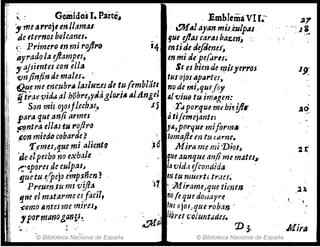 Gemidos I. Parte,
y me arrojo en llamas
de eternos bolcanes.
Primero en mi rostro 14
ayrado la estampes,
y assientes con ella
vn sinfin de males.
Que me encubra las luzes de tu semblãte
trae vida al hõbre, y dà gloria al Angel
Son mis ojos flechas, 15
para que ansi armes
contra ellas tu rostro
con miedo cobarde?
Temes, que mi aliento 16
de el pecho no exbale
vapores de culpas,
que tu espejo empañen?
Pues en tu mi vista 17
que es matarme es facil,
como antes me mires,
y por mano gansi.
Emblema VII. 27
Mal ayan mis culpas 18
que estas caras hazen,
en ti de desdenes,
en mi de pesares.
Si es bien de mis yerros 19
tus ojos apartes,
no de mi, que soy
al viuo tu imagen:
Ya porque me hiziste 20
à ti semejante:
ya, porque mi forma
tomaste en tu carne.
Mira me mi Dios, 21
que aunque ansi me mates,
la vida escondida
tus muertes traes.
Mirame, que tienen 22
no se que donayre
tus ojos, que roban
libres voluntades.
D 3. Mira
© Biblioteca Nacional de España
© Biblioteca Nacional de España